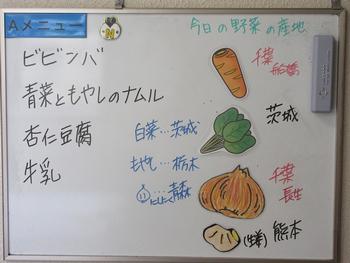 Aメニュー
今日の野菜の産地
ビビンバ
青菜ともやしのナムル
杏仁豆腐
牛乳
千葉
船橋
茨城
白菜…茨城
もやし…栃木
にんにく…青森
千葉
長生
(生姜)熊本